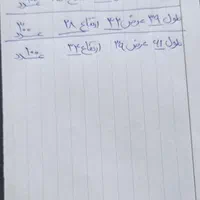 طول ۳۹ عرض ۴۲ ارتفاع ۲۸ ۳۰۰ عدد
طول ۶۱ عرض ۲۹ ارتفاع ۳۴ ۱۰۰ عدد